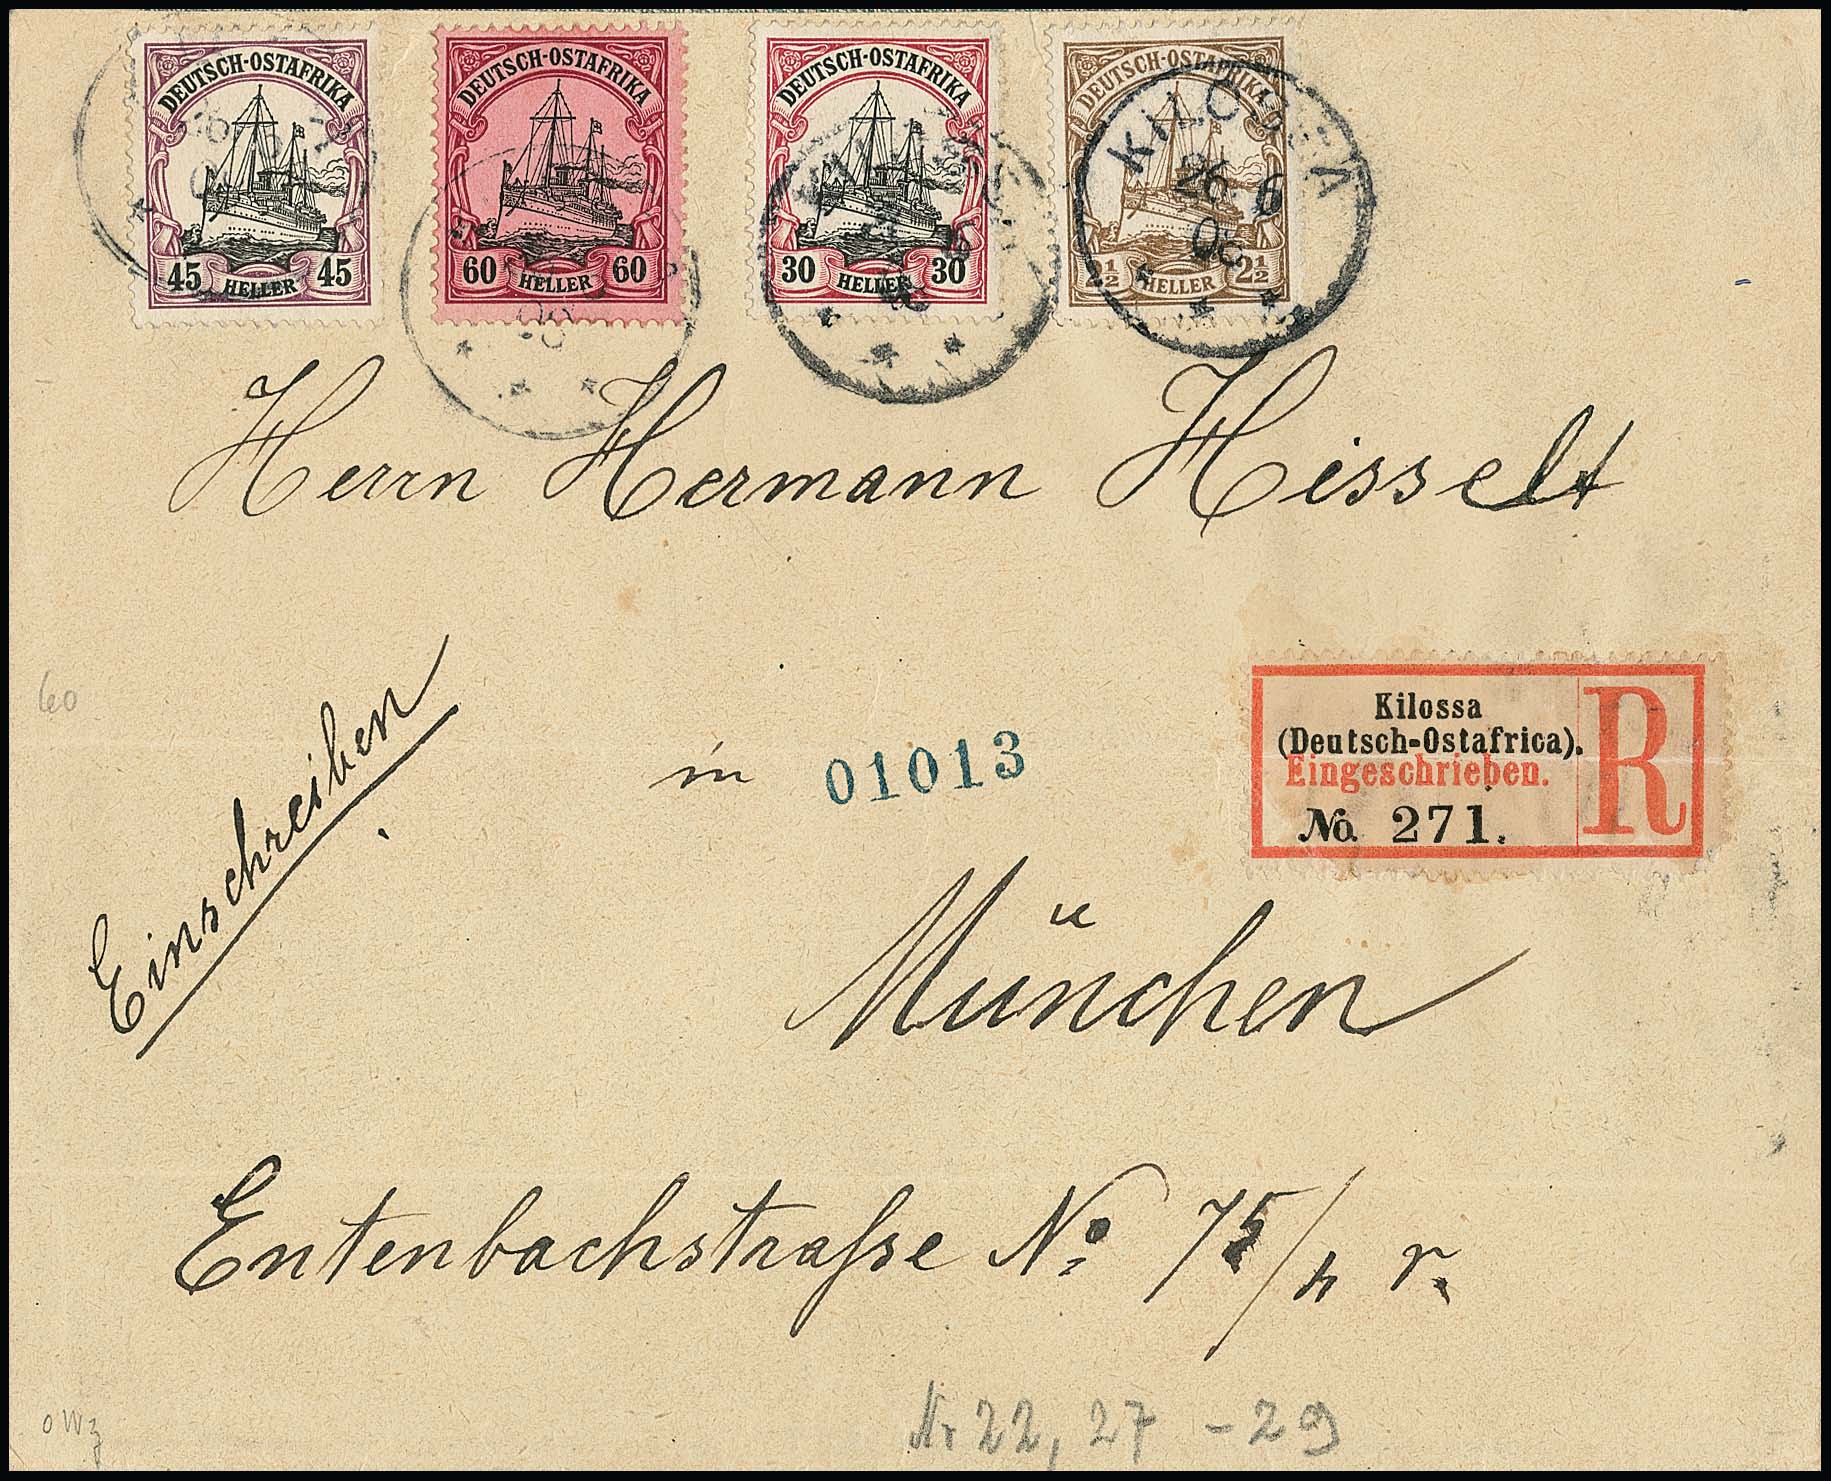 DEUTSCH-OSTAFRIKA
45 HELLER 45
DEUTSCH-OSTAFRIKA
60 HELLER 60
DEUTSCH-OSTAFRIKA
30 HELLER 30
DEUTSCH-OSTAFRIKA
2½ HELLER 2½
KILOSSA
26. 6
06
Herrn Hermann Hisselt
Einschreiben
60
in
01013
Kilossa
(Deutsch-Ostafrica).
Eingeschrieben.
No. 271.
R
München
Entenbachstraße No. 75/
r.
oWz
Nr 22, 27 - 29